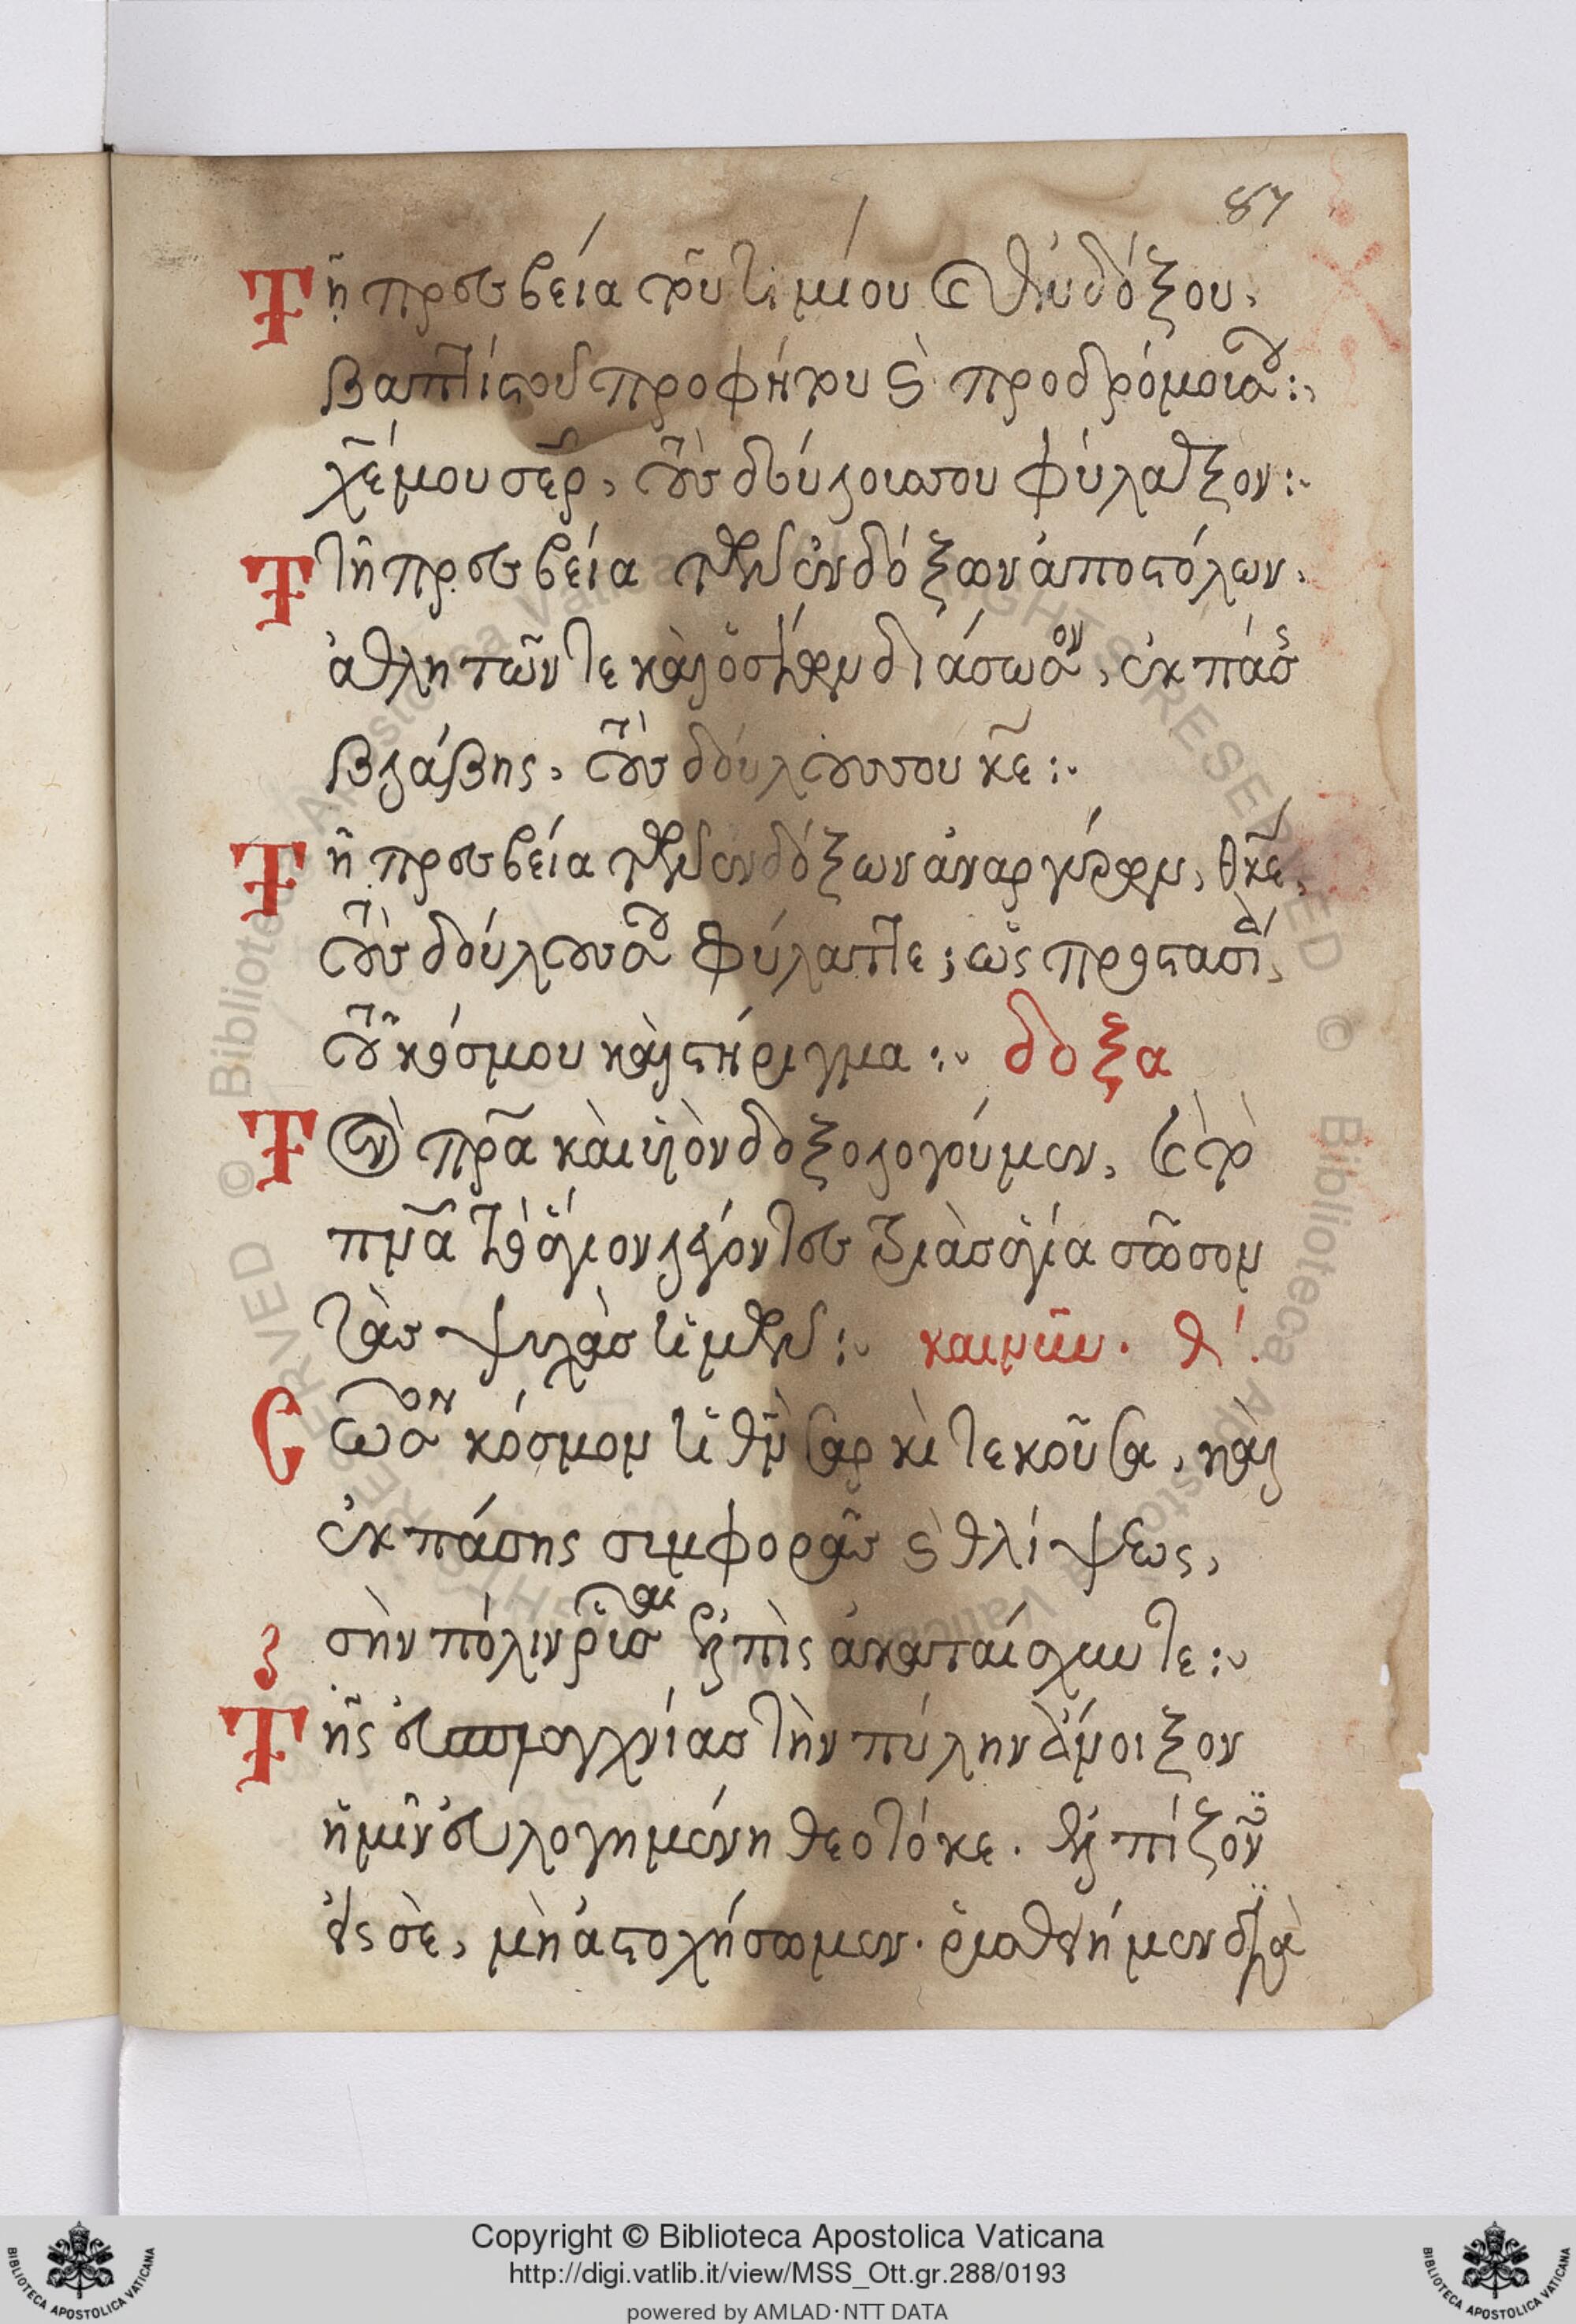 87
Τῆ πρεσβεία τοῦ τιμίου καὶ ἐνδόξου,
βαπτιστοῦ προφήτου καὶ προδρόμου σου:,
χέ μου σερ, τοὺς δούλοις σου φύλαξον:
Τῆ πρεσβεία τῶν ἐνδόξων ἀποστόλων.
ἀθλητῶν τε καὶ ὁσίων διάσωσον, ἐκ πάσης
βλάβης, τοὺς δούλους σου κε:
Τῆ πρεσβεία τῶν ἐνδόξων ἀναργύρων, θκε,
τοὺς δούλους σου φύλαττε; ὡς προστασία,
τοῦ κόσμου καὶ στήριγμα: δοξα
Τὸν πρα καὶ υἱὸν δοξολογούμεν, καὶ τὸ
πνα τὸ ἅγιον λέγοντες τριὰς ἁγία σῶσον
τὰς ψυχὰς ἡμῶν: και νῦν. θ.
Σῶσον κόσμον ἡ θν σαρκὶ τεκοῦσα, καὶ
ἐκ πάσης συμφορᾶς καὶ θλίψεως,
σὴν πόλιν ρῦσαι ἐλπὶς ἀκαταίσχυντε:
Τῆς εὐσπλαγχνίας τὴν πύλην ἄνοιξον
ἡμῖν εὐλογημένη θεοτόκε. ἐλπίζοντες
εἰς σὲ, μὴ ἀστοχήσωμεν. ρυσθείημεν διὰ
Copyright © Biblioteca Apostolica Vaticana
http://digi.vatlib.it/view/MSS_Ott.gr.288/0193
powered by AMLAD·NTT DATA